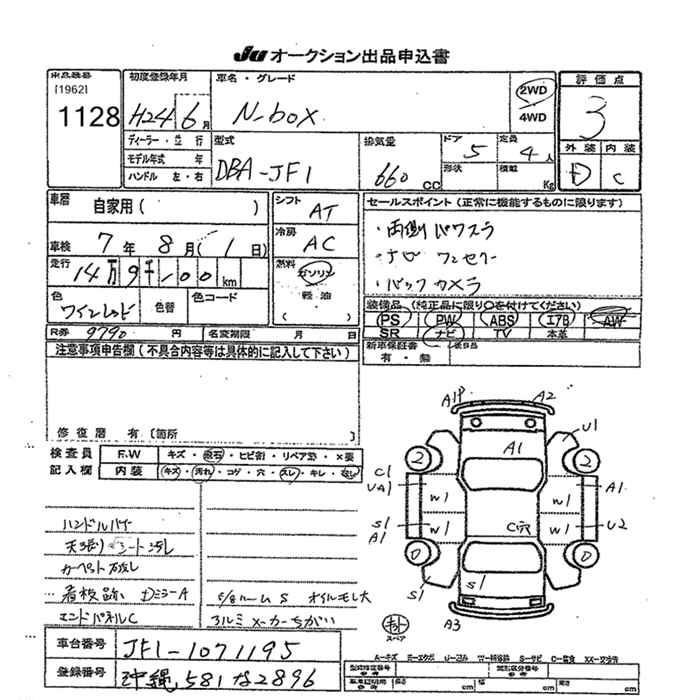 JU オークション出品申込書
[1962]
1128
初度登録年月
H24 6月
車名・グレード
N-box
2WD
4WD
評価点
3
外装 内装
D C
ディーラー・並行
モデル年式 年
ハンドル 左・右
型式
DBA-JF1
排気量
660 cc
ドア
5
形状
定員
4人
積載
Kg
車歴
自家用( )
車検 7年8月( 1日)
走行
14万9千100 km
色
ワインレッド
色替
色コード
シフト
AT
冷房
AC
燃料
ガソリン
軽油
( )
セールスポイント(正常に機能するものに限ります)
・両側パワスラ
・ナビ ワンセグ
・バックカメラ
装備品(純正品に限り○を付けてください)
PS PW ABS エアB AW
SR ナビ TV 本革
新車保証書
有・無
R券 9790 円
名変期限 月 日
注意事項申告欄(不具合内容等は具体的に記入して下さい)
修復歴 有〔箇所
検査員
記入欄
F.W キズ・飛石・ヒビ割・リペア跡・×要
内装 キズ・汚れ・コゲ・穴・スレ・キレ
ハンドルパイ
天張り シート汚レ
カーペット
看板跡 DミラーA
エンドパネルC
E/gルームS オイルモレ大
アルミメーカーちがい
車台番号 JF1-1071195
登録番号 沖縄 581 な 2896
A1P A2
U1
A1
2 2
C1
UA1
W1 W1
A1
S1
A1
W1 C穴 W1
U2
0 0
S1 S1 S1
A3
スペア
A=キズ
cm cm cm